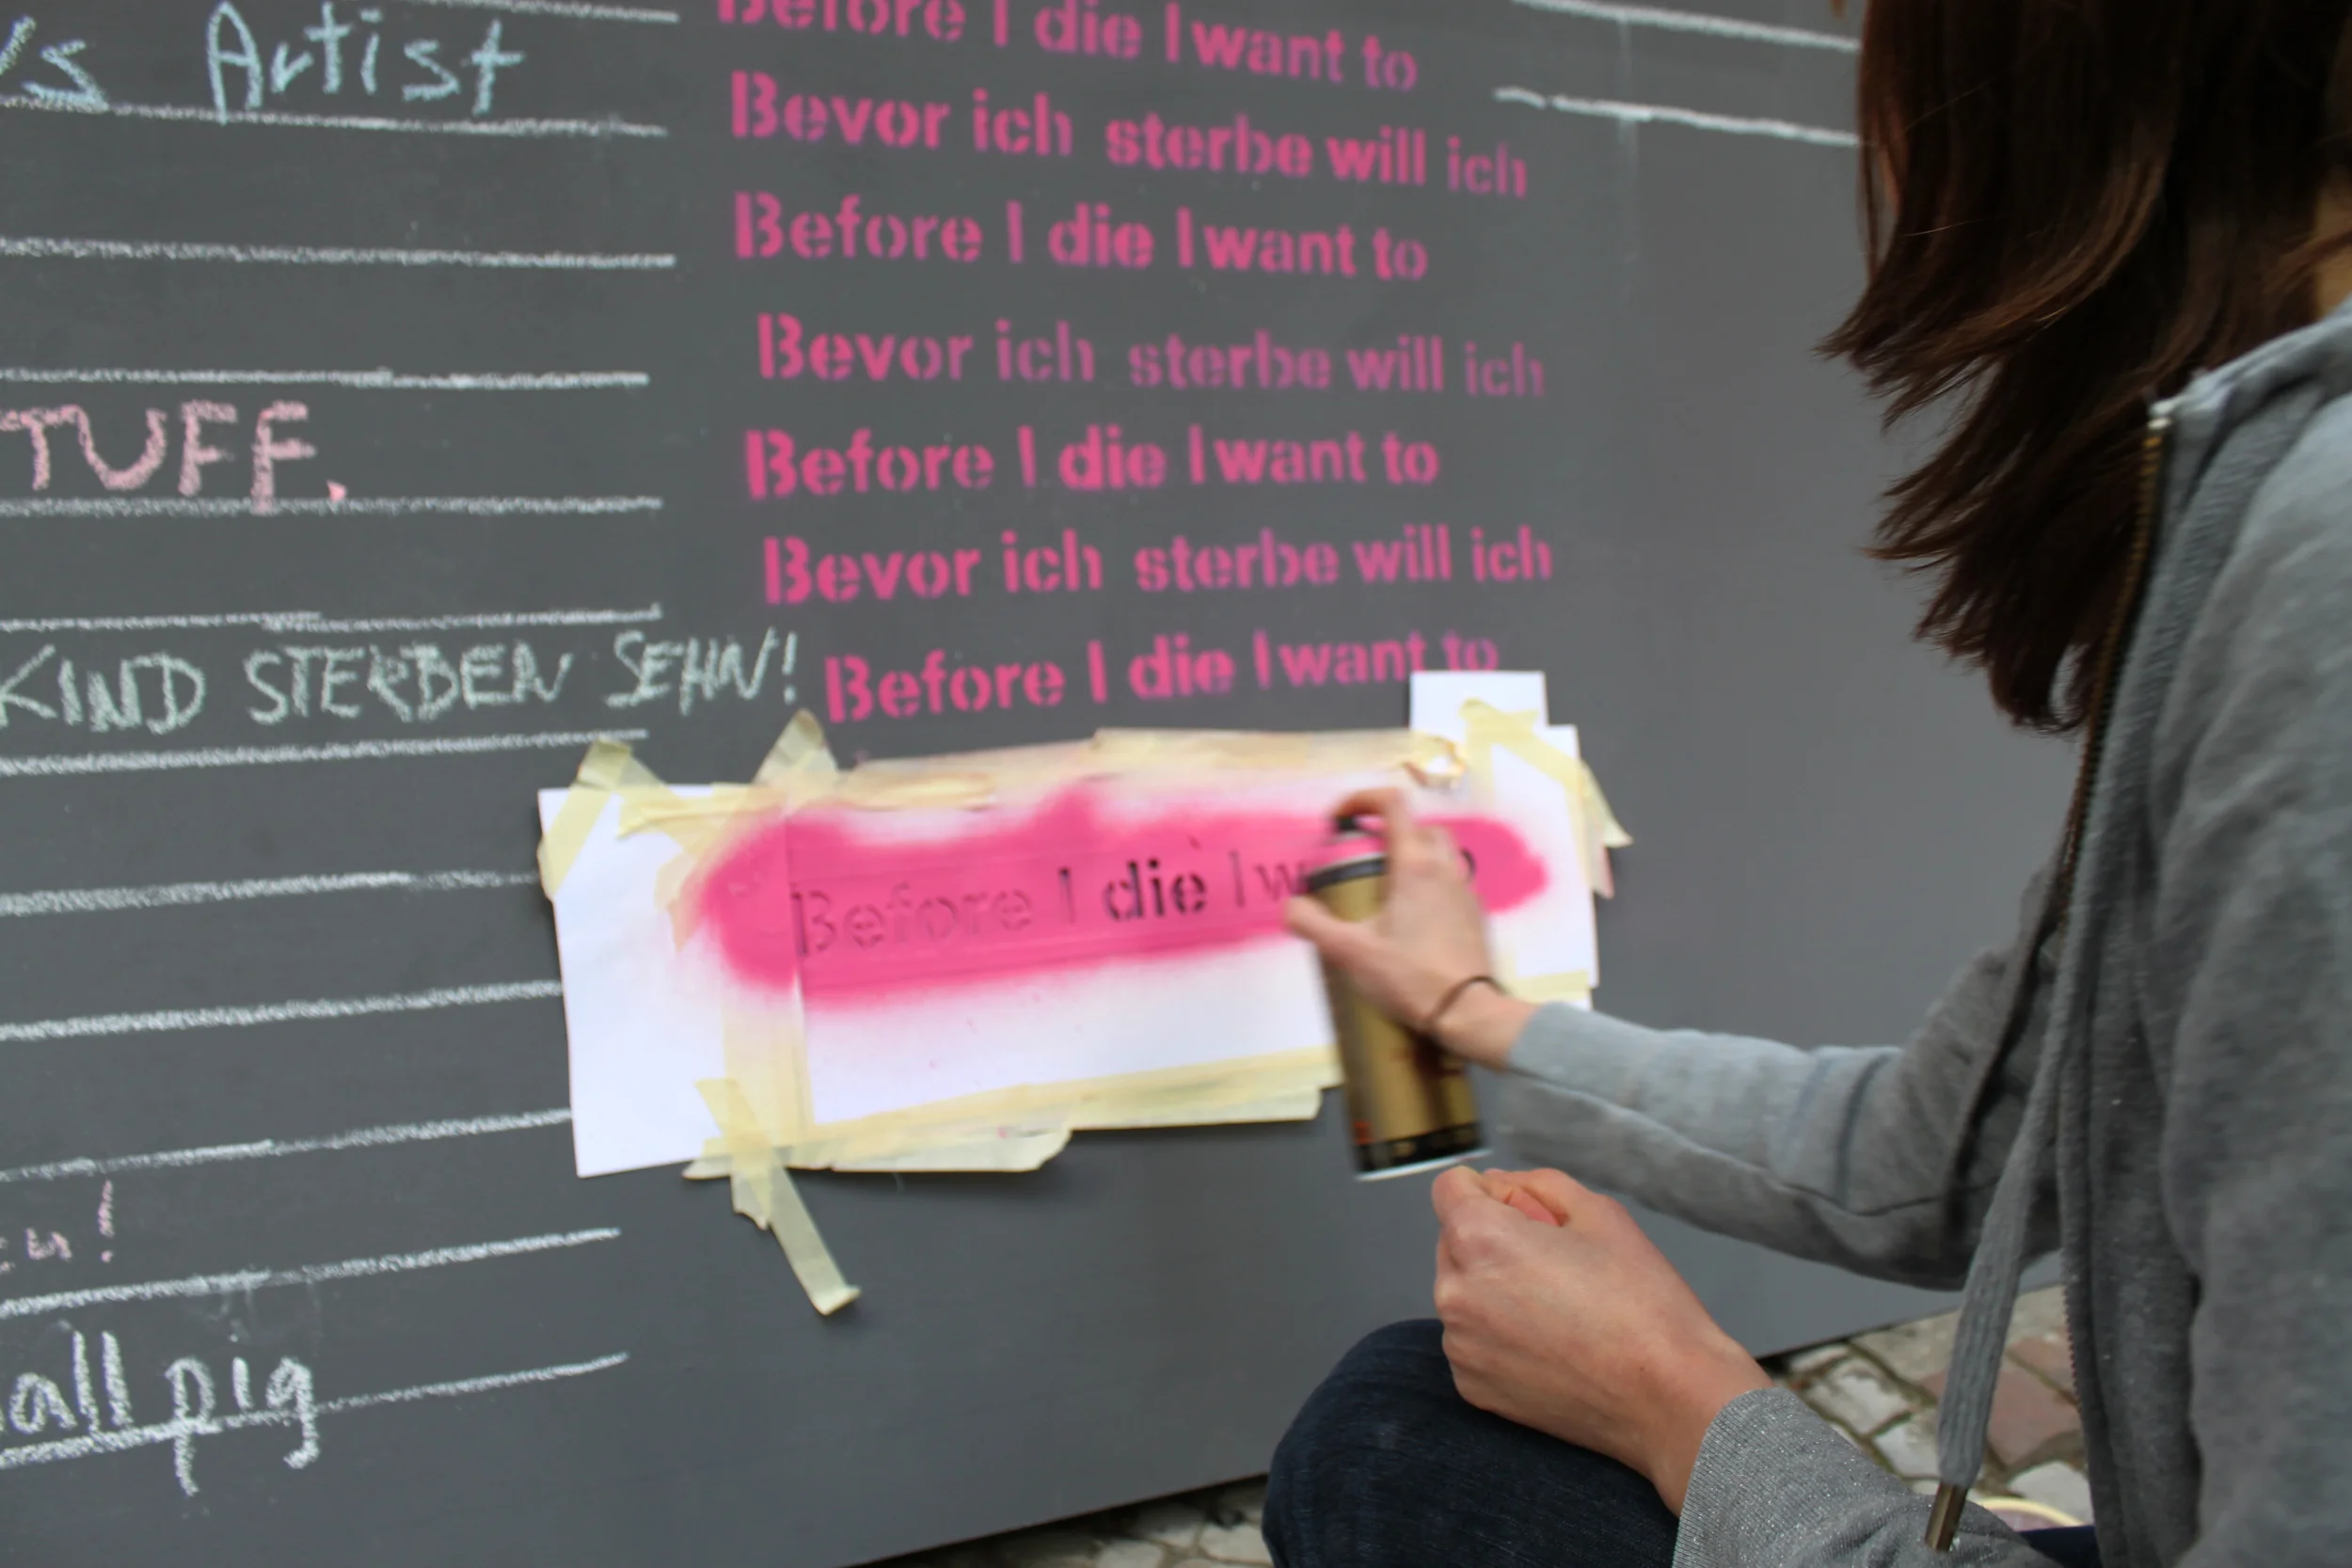 Artist
Before I die I want to
Bevor ich sterbe will ich
Before I die I want to
Bevor ich sterbe will ich
Before I die I want to
Bevor ich sterbe will ich
Before I die I want to
TUFF.
KIND STERBEN SEHN!
Before I die I w
pig